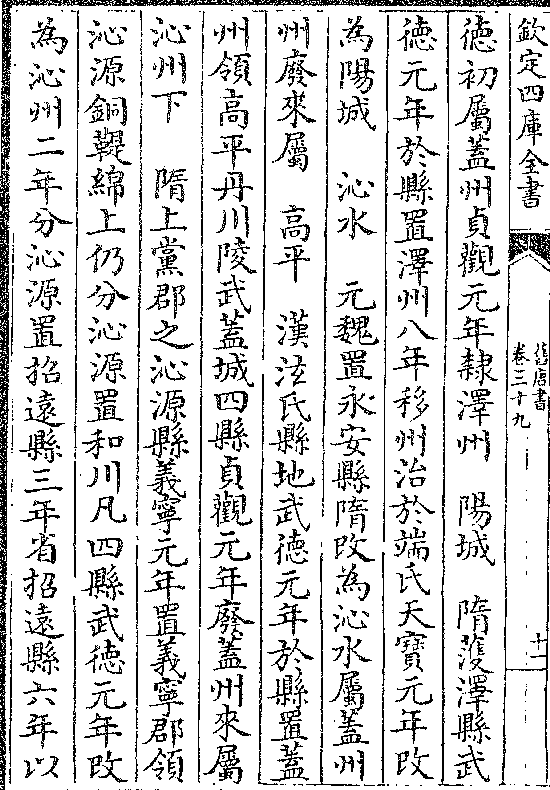 欽定四庫全書
舊唐書
卷三十九
十一
徳初屬蓋州貞觀元年隸澤州　陽城　隋濩澤縣武
徳元年於縣置澤州八年移州治於端氏天寶元年改
為陽城　沁水　元魏置永安縣隋改為沁水屬蓋州
州廢來屬　高平　漢泫氏縣地武徳元年於縣置蓋
州領高平丹川陵武蓋城四縣貞觀元年廢蓋州來屬
沁州下　隋上黨郡之沁源縣義寧元年置義寧郡領
沁源銅鞮綿上仍分沁源置和川凡四縣武徳元年改
為沁州二年分沁源置招遠縣三年省招遠縣六年以